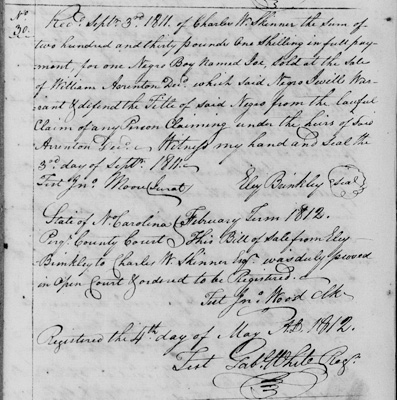 No.
30.
Recd. Septr. 3rd 1811. of Charles W. Skinner the sum of
two hundred and thirty pounds one Shilling in full pay-
ment, for one Negro Boy Named Joe, Sold at the Sale
of William Arenton Decd. which said Negro I will War-
rant & defend the Title of Said Negro from the lawful
Claim of any Person Claiming under the heirs of Said
Arenton Decd. Witness my hand and Seal the
3rd day of Septr. 1811.
Test Jno. Moore Jurat Eley Binkley Seal
State of N. Carolina February Term 1812.
Perqs. County Court This Bill of Sale from Eley
Brinkley to Charles W. Skinner Esqr. was duly proved
in Open Court & ordered to be Registered.
Test Jno. Wood Clk
Registered the 4th day of May A.D. 1812.
Test Gabl. White Regr.